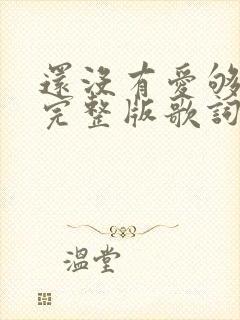 還沒有愛夠
完整版歌詞
溫堂